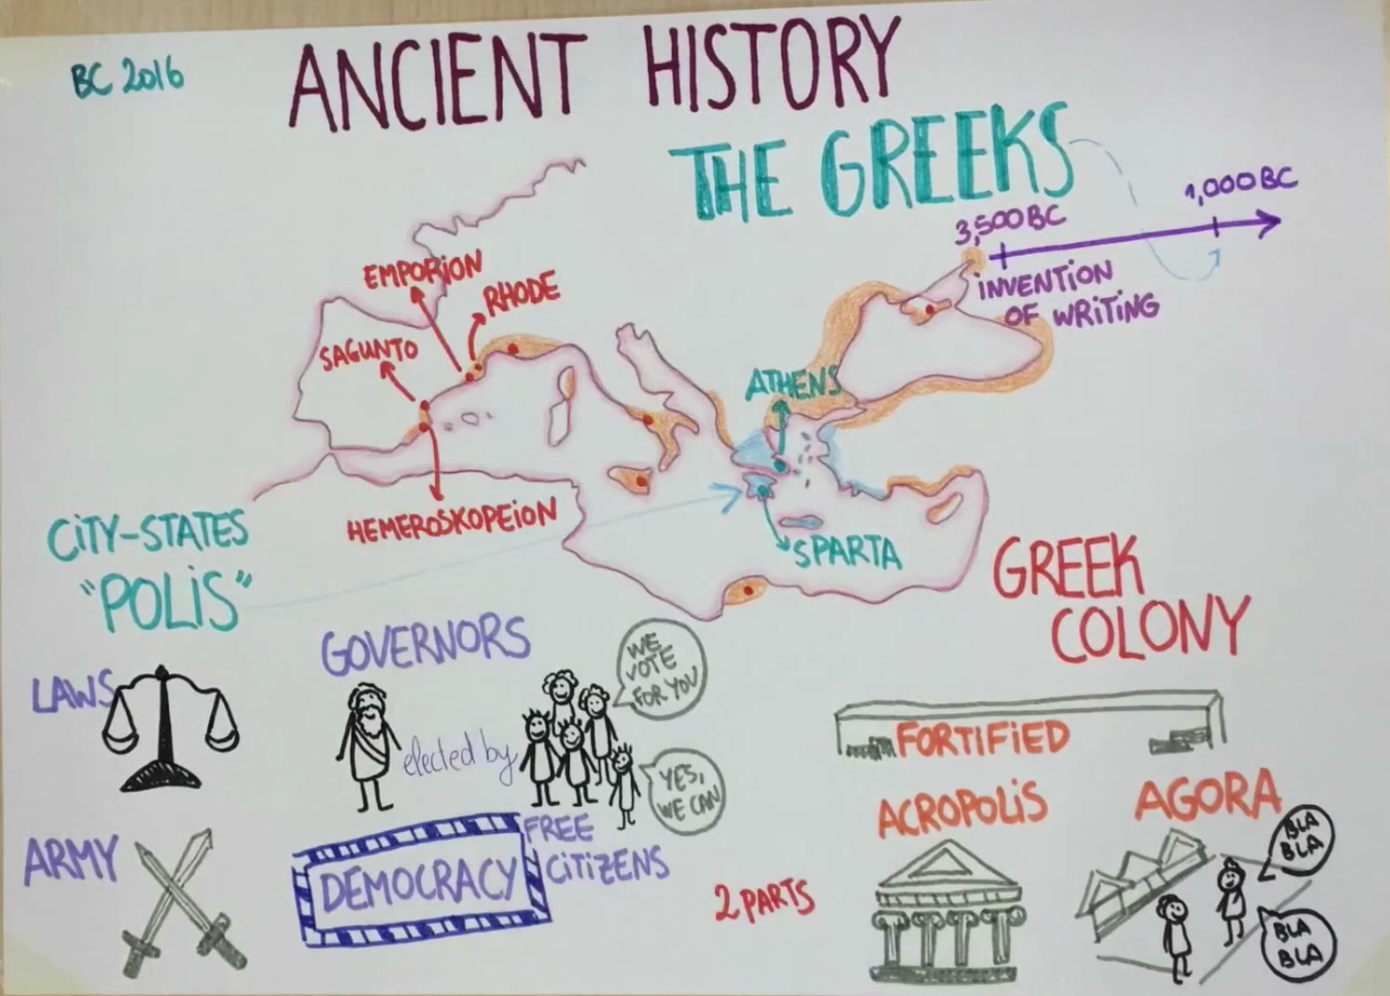 BC 2016
ANCIENT HISTORY
THE GREEKS
3,500 BC
1,000 BC
INVENTION
OF WRITING
EMPORION
RHODE
SAGUNTO
HEMEROSKOPEION
ATHENS
SPARTA
CITY-STATES
"POLIS"
GREEK
COLONY
LAWS
GOVERNORS
elected by
WE
VOTE
FOR YOU
YES,
WE CAN
FREE
CITIZENS
ARMY
DEMOCRACY
2 PARTS
FORTIFIED
ACROPOLIS
AGORA
BLA
BLA
BLA
BLA